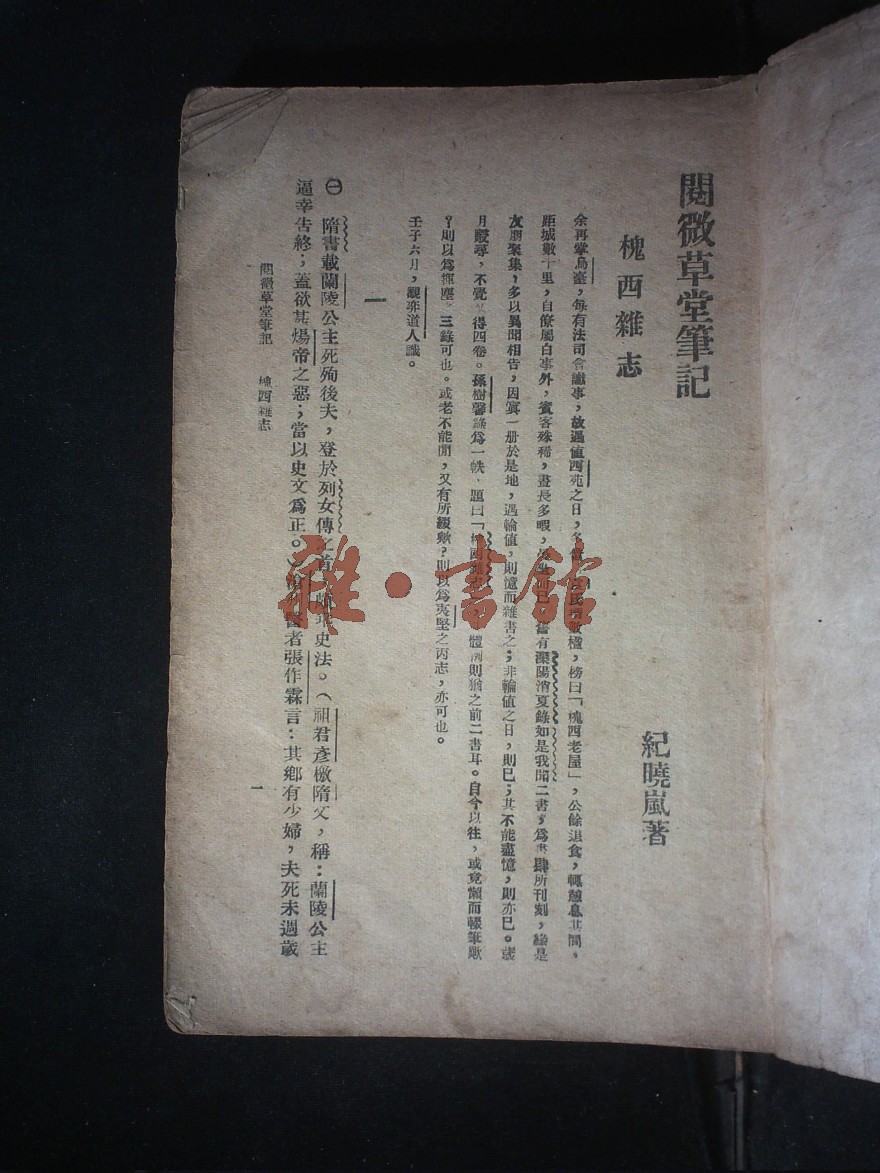 閱微草堂筆記
槐西雜志
紀曉嵐著
余再掌烏臺，每有法司會讞事，故遇值西苑之日，多借氏數楹，榜曰「槐西老屋」，公餘退食，輒憩息其間。
距城數十里，自僚屬白事外，賓客殊稀，晝長多暇，舊有灤陽消夏錄如是我聞二書，為書肆所刊刻，緣是
友朋聚集，多以異聞相告，因寘一册於是地，遇輪值，則憶而雜書之；非輪值之日，則已；其不能盡憶，則亦已。歲
月駸尋，不覺得四卷。孫樹馨錄為一帙，題曰「槐西雜志」體例則猶之前二書耳。自今以往，或竟懶而輟筆歟
？則以為揮麈三錄可也。或老不能閒，又有所綴歟？則以為夷堅之丙志，亦可也。
壬子六月，觀弈道人識。
一
㊀隋書載蘭陵公主死殉後夫，登於列女傳之首，頗史法。（祖君彥檄隋文，稱：蘭陵公主
逼幸告終；蓋欲甚煬帝之惡；當以史文為正。）滄醫者張作霖言：其鄉有少婦，夫死未週歲
閱微草堂筆記　槐西雜志
一
雜·書館